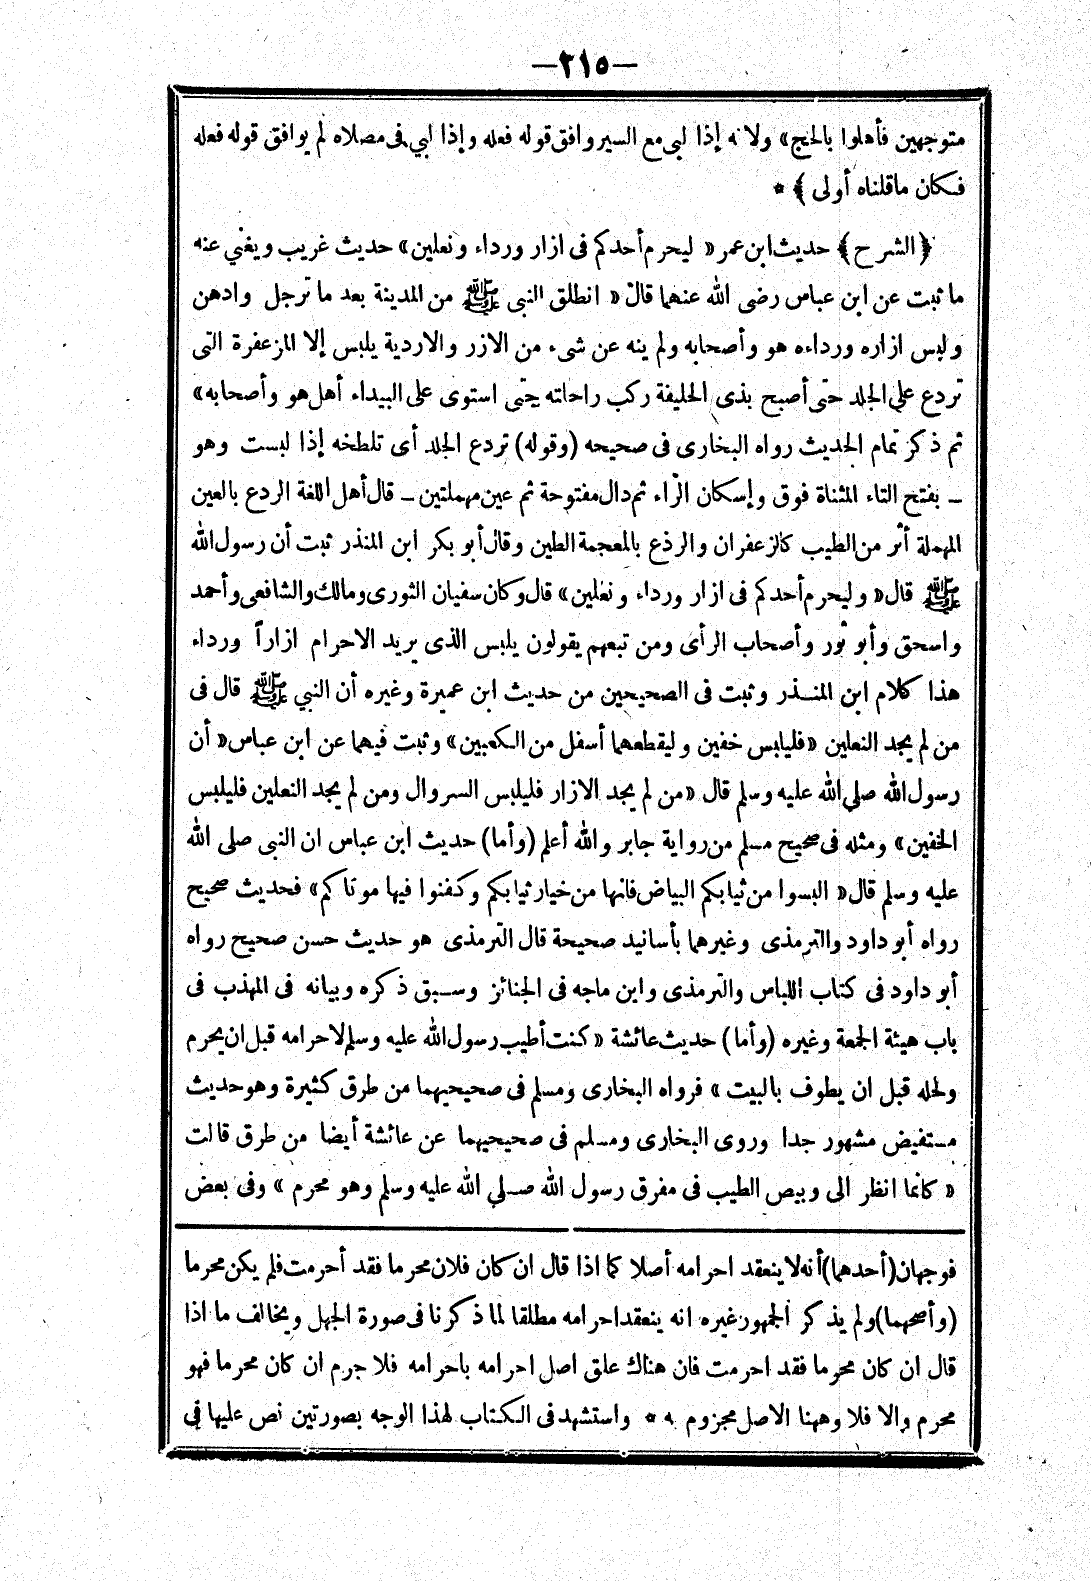 —٢١٥—
متوجهين فأهلوا بالحج» ولانه إذا لبى مع السير وافق قوله فعله وإذا لبي فى مصلاه لم يوافق قوله فعله
فكان ماقلناه أولى ﴾ *
﴿ الشرح ﴾ حديث ابن عمر « ليحرم أحدكم فى ازار ورداء ونعلين» حديث غريب ويغني عنه
ما ثبت عن ابن عباس رضى الله عنهما قال « انطلق النبى ﷺ من المدينة بعد ما ترجل وادهن
ولبس ازاره ورداءه هو وأصحابه ولم ينه عن شىء من الازر والاردية يلبس إلا المزعفرة التى
تردع علي الجلد حتى أصبح بذى الحليفة ركب راحلته حتى استوى على البيداء أهل هو وأصحابه»
ثم ذكر تمام الحديث رواه البخارى فى صحيحه (وقوله) تردع الجلد أى تلطخه إذا لبست وهو
ـ بفتح التاء المثناة فوق وإسكان الراء ثم دال مفتوحة ثم عين مهملتين ـ قال أهل اللغة الردع بالعين
المهملة أثر من الطيب كالزعفران والرذغ بالمعجمة الطين وقال أبو بكر ابن المنذر ثبت أن رسول الله
ﷺ قال « وليحرم أحدكم فى ازار ورداء ونعلين» قال وكان سفيان الثورى ومالك والشافعى وأحمد
واسحق وأبو ثور وأصحاب الرأى ومن تبعهم يقولون يلبس الذى يريد الاحرام ازاراً ورداء
هذا كلام ابن المنذر وثبت فى الصحيحين من حديث ابن عميرة وغيره أن النبي ﷺ قال فى
من لم يجد النعلين «فليلبس خفين وليقطعهما أسفل من الكعبين» وثبت فيهما عن ابن عباس « أن
رسول الله صلي الله عليه وسلم قال «من لم يجد الازار فليلبس السروال ومن لم يجد النعلين فليلبس
الخفين» ومثله فى صحيح مسلم من رواية جابر والله أعلم (وأما) حديث ابن عباس ان النبى صلى الله
عليه وسلم قال « البسوا من ثيابكم البياض فانها من خيار ثيابكم وكفنوا فيها موتاكم» فحديث صحيح
رواه أبو داود والترمذى وغيرهما بأسانيد صحيحة قال الترمذى هو حديث حسن صحيح رواه
أبو داود فى كتاب اللباس والترمذى وابن ماجه فى الجنائز وسبق ذكره وبيانه فى المهذب فى
باب هيئة الجمعة وغيره (وأما) حديث عائشة « كنت أطيب رسول الله عليه وسلم لاحرامه قبل ان يحرم
ولحله قبل ان يطوف بالبيت» فرواه البخارى ومسلم فى صحيحيهما من طرق كثيرة وهو حديث
مستفيض مشهور جدا وروى البخارى ومسلم فى صحيحيهما عن عائشة أيضا من طرق قالت
« كانما انظر الى وبيص الطيب فى مفرق رسول الله صلي الله عليه وسلم وهو محرم » وفى بعض
فوجهان (أحدهما) أنه لا ينعقد احرامه أصلا كما اذا قال ان كان فلان محرما فقد أحرمت فلم يكن محرما
(وأصحهما) ولم يذكر الجمهور غيره انه ينعقد احرامه مطلقا لما ذكرنا فى صورة الجهل ويخالف ما اذا
قال ان كان محرما فقد احرمت فان هناك علق اصل احرامه باحرامه فلا جرم ان كان محرما فهو
محرم والا فلا وههنا الاصل مجزوم به * واستشهد فى الكتاب لهذا الوجه بصورتين نص عليها فى